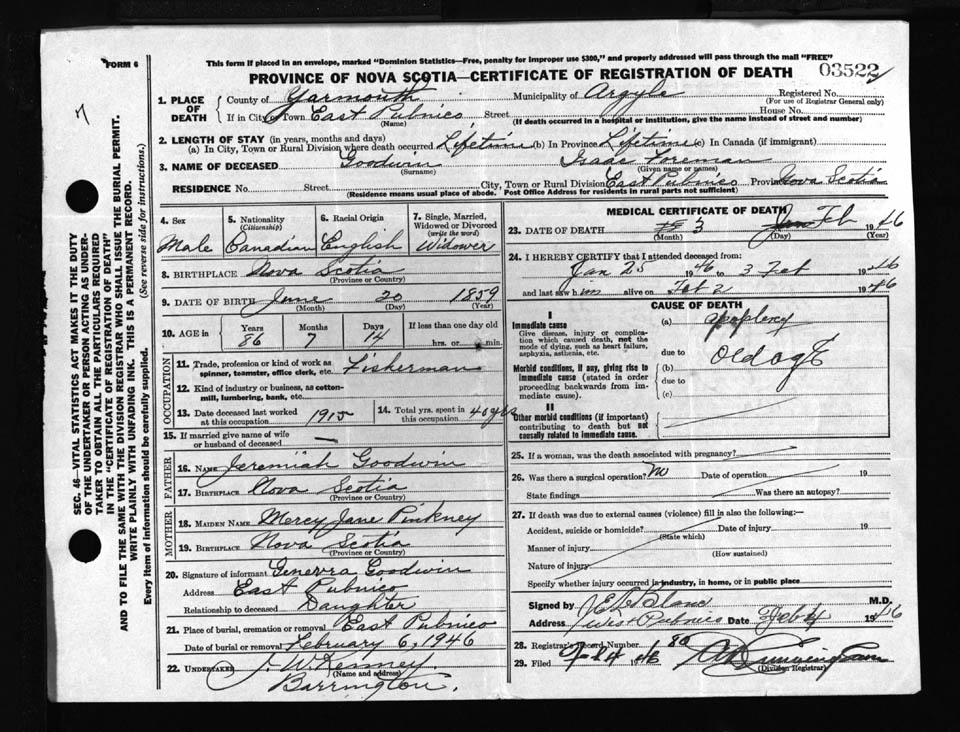 This form if placed in an envelope, marked "Dominion Statistics—Free, penalty for improper use $300," and properly addressed will pass through the mail "FREE"
FORM 6
PROVINCE OF NOVA SCOTIA—CERTIFICATE OF REGISTRATION OF DEATH
03522
7
1. PLACE OF DEATH
County of Yarmouth Municipality of Argyle Registered No.
(For use of Registrar General only)
If in City or Town East Pubnico Street House No.
(Name) (If death occurred in a hospital or institution, give the name instead of street and number)
2. LENGTH OF STAY (in years, months and days)
(a) In City, Town or Rural Division where death occurred Lifetime (b) In Province Lifetime (c) In Canada (if immigrant)
3. NAME OF DECEASED Goodwin Isaac Foreman
(Surname) (Given name or names)
RESIDENCE No. Street City, Town or Rural Division East Pubnico Province Nova Scotia
(Residence means usual place of abode. Post Office Address for residents in rural parts not sufficient)
4. Sex Male
5. Nationality (Citizenship) Canadian
6. Racial Origin English
7. Single, Married, Widowed or Divorced (write the word) Widower
8. BIRTHPLACE Nova Scotia
(Province or Country)
9. DATE OF BIRTH June 20 1859
(Month) (Day) (Year)
10. AGE in Years Months Days If less than one day old
86 7 14 hrs. or min.
OCCUPATION
11. Trade, profession or kind of work as spinner, teamster, office clerk, etc. Fisherman
12. Kind of industry or business, as cotton-mill, lumbering, bank, etc.
13. Date deceased last worked at this occupation 1915
14. Total yrs. spent in this occupation 40 yrs
15. If married give name of wife or husband of deceased —
FATHER
16. NAME Jeremiah Goodwin
17. BIRTHPLACE Nova Scotia
(Province or Country)
MOTHER
18. MAIDEN NAME Mercy Jane Pinkney
19. BIRTHPLACE Nova Scotia
(Province or Country)
20. Signature of informant Genevra Goodwin
Address East Pubnico
Relationship to deceased Daughter
21. Place of burial, cremation or removal East Pubnico
Date of burial or removal February 6, 1946
22. UNDERTAKER J. W. Kenney
(Name and address)
Barrington.
MEDICAL CERTIFICATE OF DEATH
23. DATE OF DEATH 3 Feb 1946
(Month) (Day) (Year)
24. I HEREBY CERTIFY that I attended deceased from:
Jan 25 1946 to 3 Feb 1946
and last saw him alive on Feb 2 1946
CAUSE OF DEATH
I
Immediate cause (a) apoplexy
Give disease, injury or complication which caused death, not the mode of dying, such as heart failure, asphyxia, asthenia, etc.
due to old age
Morbid conditions, if any, giving rise to immediate cause (stated in order proceeding backwards from immediate cause).
(b)
due to
(c)
II
Other morbid conditions (if important) contributing to death but not causally related to immediate cause.
25. If a woman, was the death associated with pregnancy?
26. Was there a surgical operation? no Date of operation 19
State findings Was there an autopsy?
27. If death was due to external causes (violence) fill in also the following:—
Accident, suicide or homicide? Date of injury 19
(State which)
Manner of injury
(How sustained)
Nature of injury
Specify whether injury occurred in industry, in home, or in public place
Signed by E LeBlanc M.D.
Address West Pubnico Date Feb 4 1946
28. Registrar's Record Number 80
29. Filed 1946
(Division Registrar)
SEC. 46—VITAL STATISTICS ACT MAKES IT THE DUTY
OF THE UNDERTAKER OR PERSON ACTING AS UNDER-
TAKER TO OBTAIN ALL THE PARTICULARS REQUIRED
IN THE "CERTIFICATE OF REGISTRATION OF DEATH"
AND TO FILE THE SAME WITH THE DIVISION REGISTRAR WHO SHALL ISSUE THE BURIAL PERMIT.
WRITE PLAINLY WITH UNFADING INK. THIS IS A PERMANENT RECORD.
Every item of information should be carefully supplied. (See reverse side for instructions.)